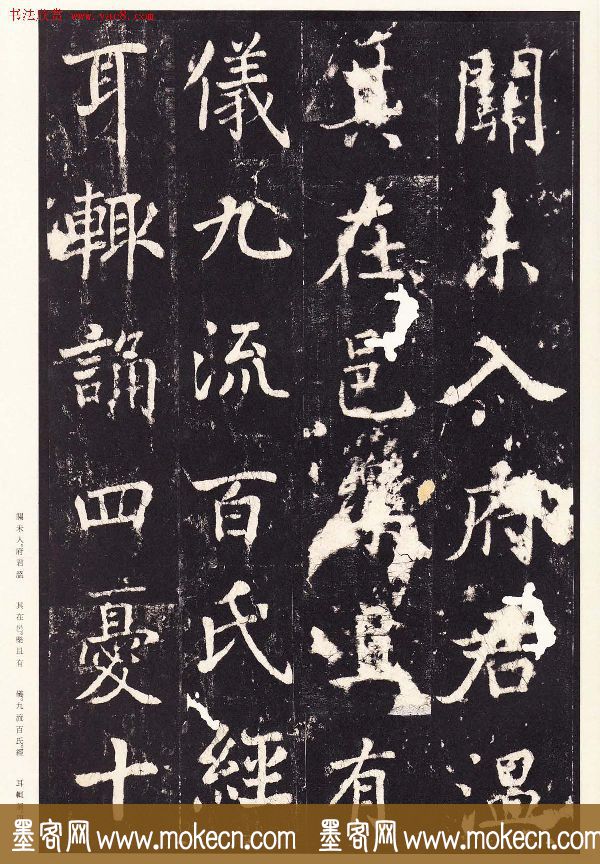 书法欣赏 www.yac8.com
關未入府君溫
其在邑樂且有
儀九流百氏經
耳輒誦四憂十
關未入府君溫 其在邑樂且有 儀九流百氏經 耳輒
墨客网 www.mokecn.com 墨客网 www.mokecn.com